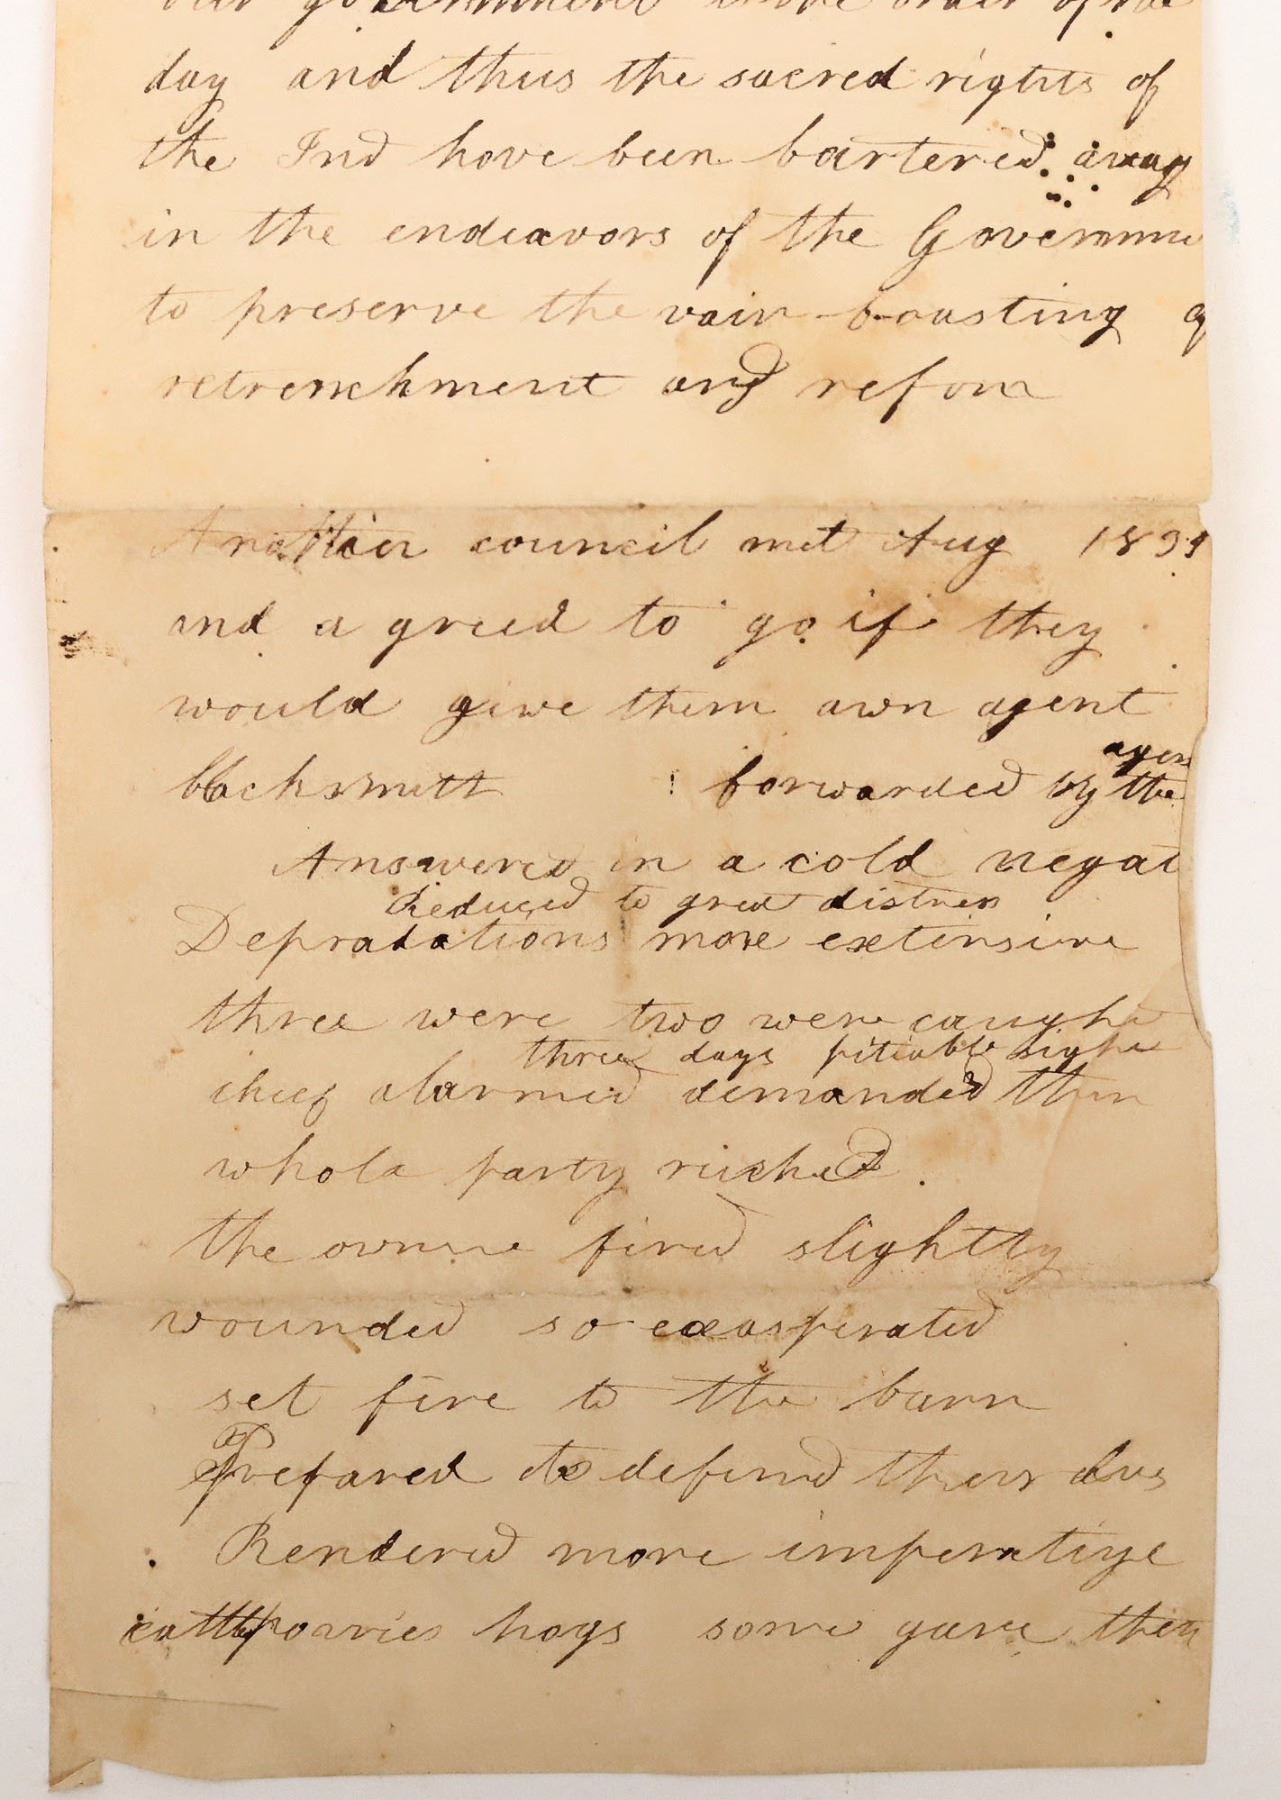 our government
day and thus the sacred rights of
the Ind have been bartered away
in the endeavors of the Governme
to preserve the vain boasting of
retrenchment and refom
Another council met Aug 1839
and a greed to go if they
would give them own agent
agen
blacksmith forwarded by the
Answered in a cold negat
Reduced to great distress
Depradations more extensive
three were two were caught
three days pitiable sight
chief alarmed demanded them
whole party rushed.
the owner fired slightly
wounded so exasperated
set fire to the barn
Prepared to defend their
Rendered more imperative
cattle hogs some gave them